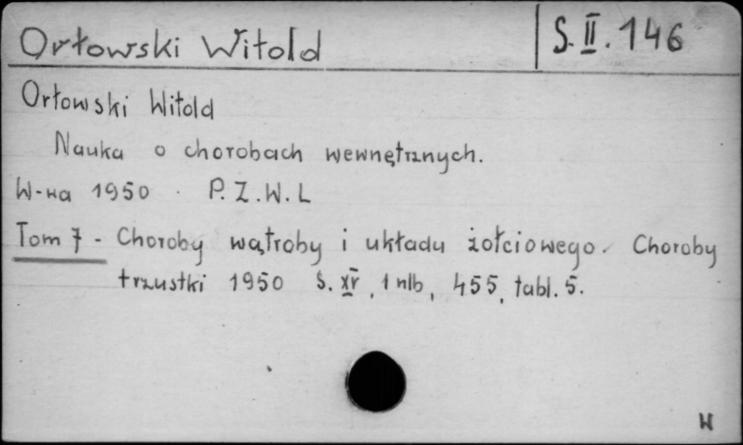 Orłowski Witold
S.II.146
Orłowski Witold
Nauka o chorobach wewnętrznych.
W-wa 1950 . P.Z.W.L
Tom 7 - Choroby wątroby i układu żołciowego. Choroby
trzustki 1950 S. XV, 1 nlb, 455, tabl. 5.
W